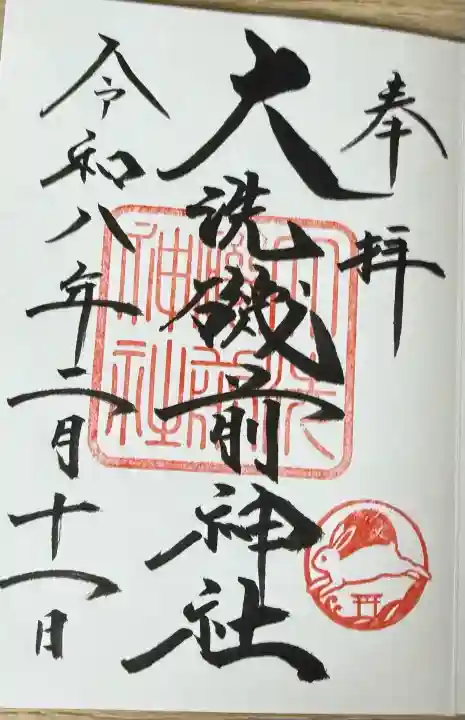 奉拝
大洗磯前神社
令和八年二月十一日
大洗磯前神社